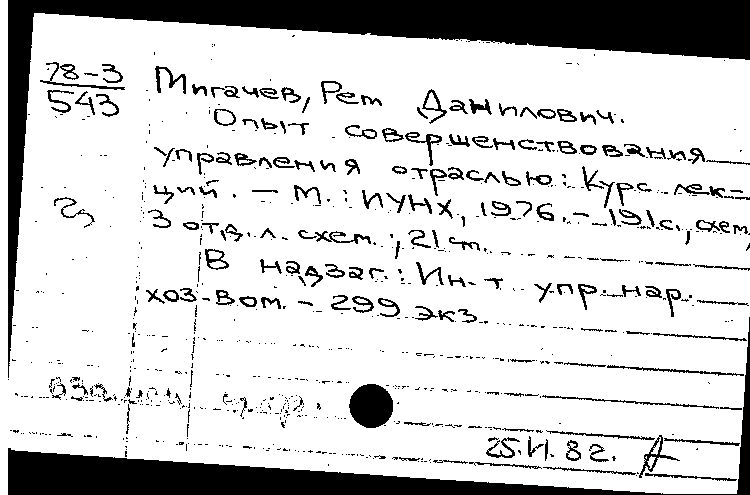 78-3
543
Мигачев, Рем Данилович.
Опыт совершенствования
управления отраслью: Курс лек-
ций. — М.: ИУНХ, 1976. – 191 с., схем,
3 отд. л. схем.; 21 см.
В надзаг.: Ин-т упр. нар.
хоз-вом. – 299 экз.
взамен
25.VI.82г.